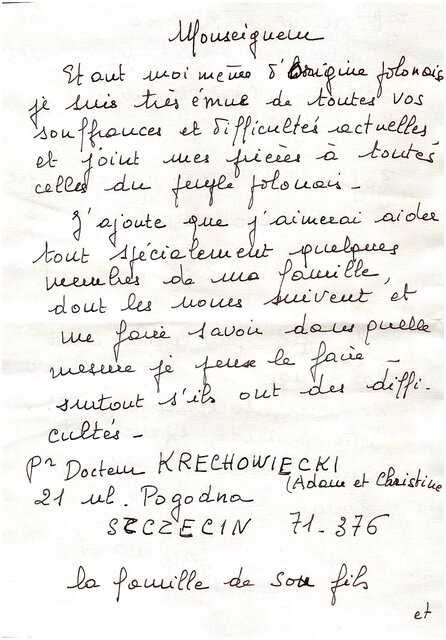 Monseigneur
Etant moi même d'origine polonais
je suis très émue de toutes vos
souffrances et difficultés actuelles
et joint mes prières à toutes
celles du peuple polonais -
J'ajoute que j'aimerai aider
tout spécialement quelques
membres de ma famille,
dont les noms suivent et
me faire savoir dans quelle
mesure je peux le faire -
surtout s'ils ont des diffi-
cultés -
Pr Docteur KRECHOWIECKI
(Adam et Christine
21 ul. Pogodna
SZCZECIN 71-376
la famille de son fils
et